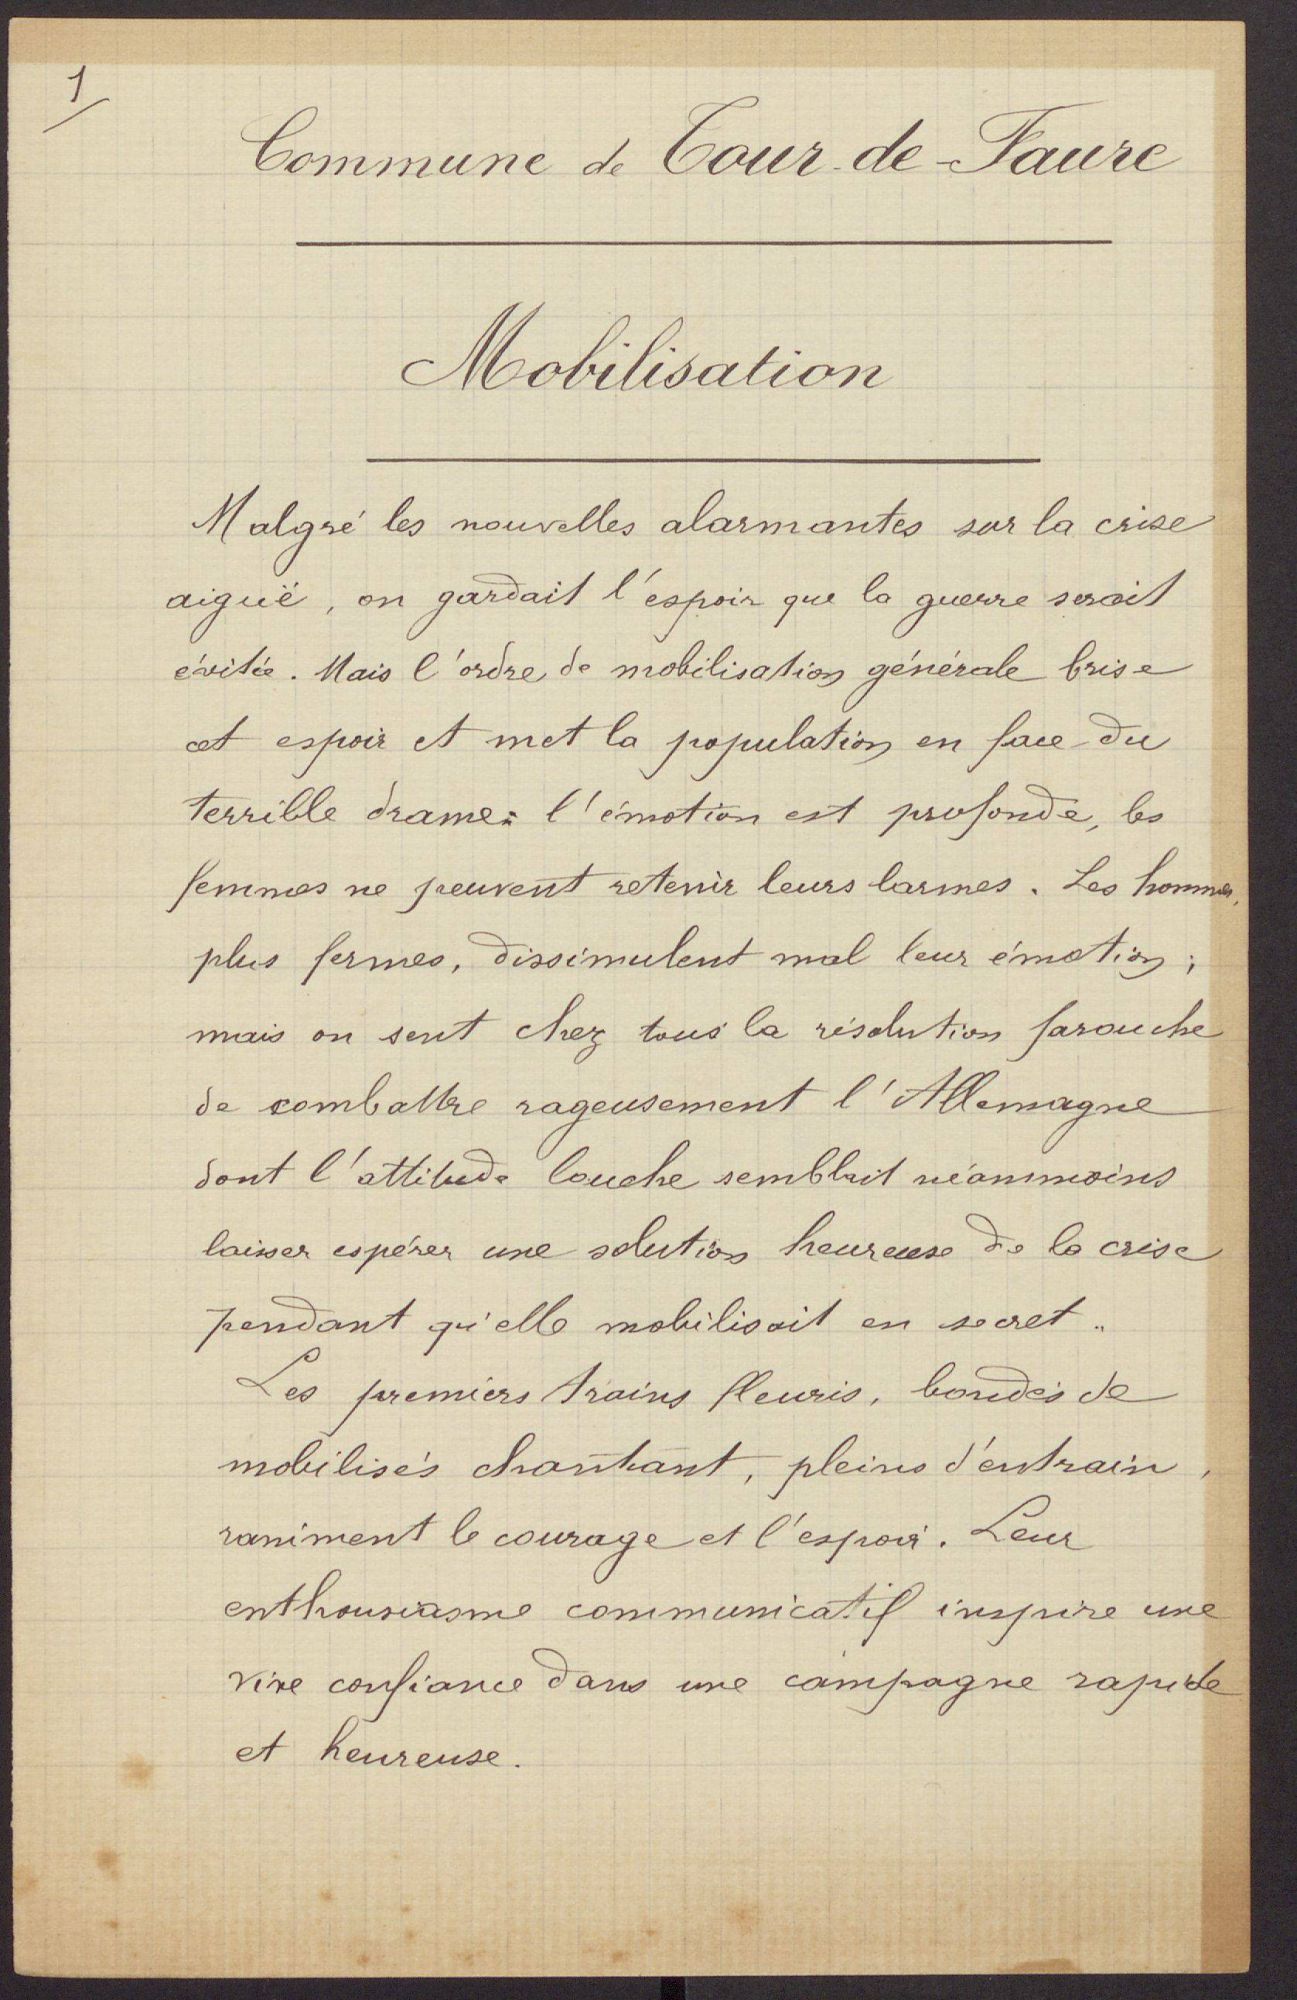 1
Commune de Tour-de-Faure
Mobilisation
Malgré les nouvelles alarmantes sur la crise
aiguë, on gardait l'espoir que la guerre serait
évitée. Mais l'ordre de mobilisation générale brise
cet espoir et met la population en face du
terrible drame : l'émotion est profonde, les
femmes ne peuvent retenir leurs larmes. Les hommes,
plus fermes, dissimulent mal leur émotion ;
mais on sent chez tous la résolution farouche
de combattre rageusement l'Allemagne
dont l'attitude louche semblait néammoins
laisser espérer une solution heureuse de la crise
pendant qu'elle mobilisait en secret.
Les premiers trains fleuris, bondés de
mobilisés chantant, pleins d'entrain,
raniment le courage et l'espoir. Leur
enthousiasme communicatif inspire une
vive confiance dans une campagne rapide
et heureuse.